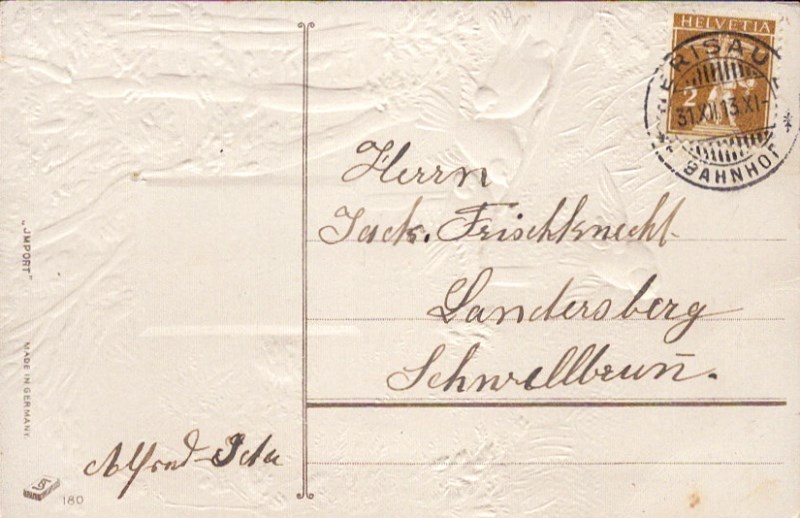 HELVETIA
2
HERISAU
31.XII.13.XI-
BAHNHOF
Herrn
Jack. Frischknecht
Landersberg
Schwellbrun̄.
Alfred
„IMPORT"
MADE IN GERMANY.
180